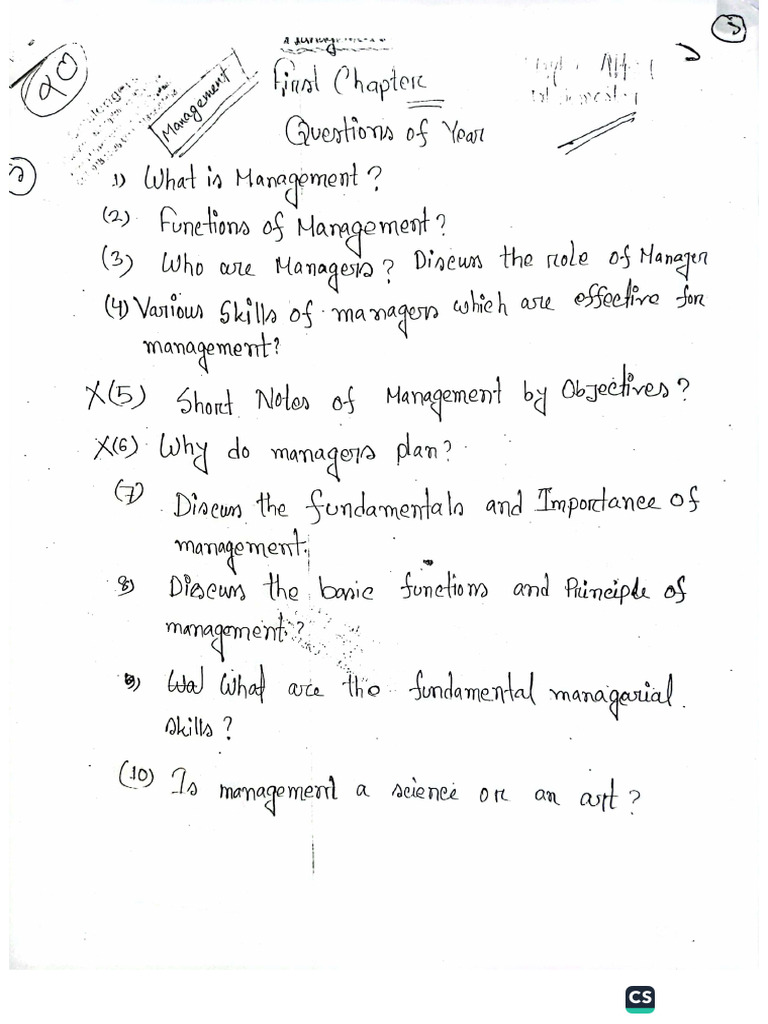 First Chapter
Management
Questions of Year
1) What is Management?
(2) Functions of Management?
(3) Who are Managers? Discuss the role of Manager
(4) Various Skills of managers which are effective for
management?
X(5) Short Notes of Management by Objectives?
X(6) Why do managers plan?
(7) Discuss the fundamentals and Importance of
management.
8) Discuss the basic functions and Principle of
management?
9) What are the fundamental managarial
skills?
(10) Is management a science or an art?
CS